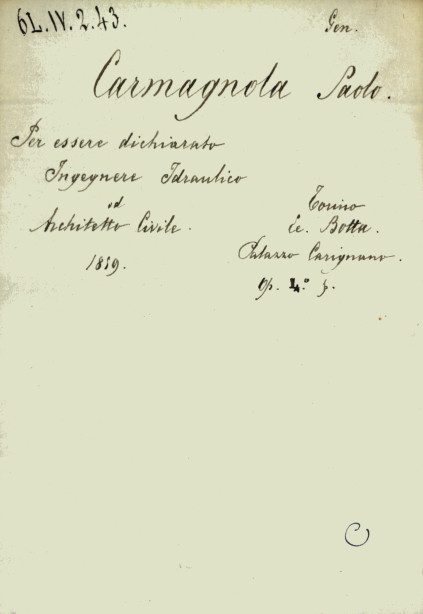 6L.IV.2.43.
Gen.
Carmagnola Paolo.
Per essere dichiarato
Ingegnere Idraulico
ed
Architetto Civile.
1859.
Torino
Ec. Botta.
Palazzo Carignano.
Op. 4.° f.
C